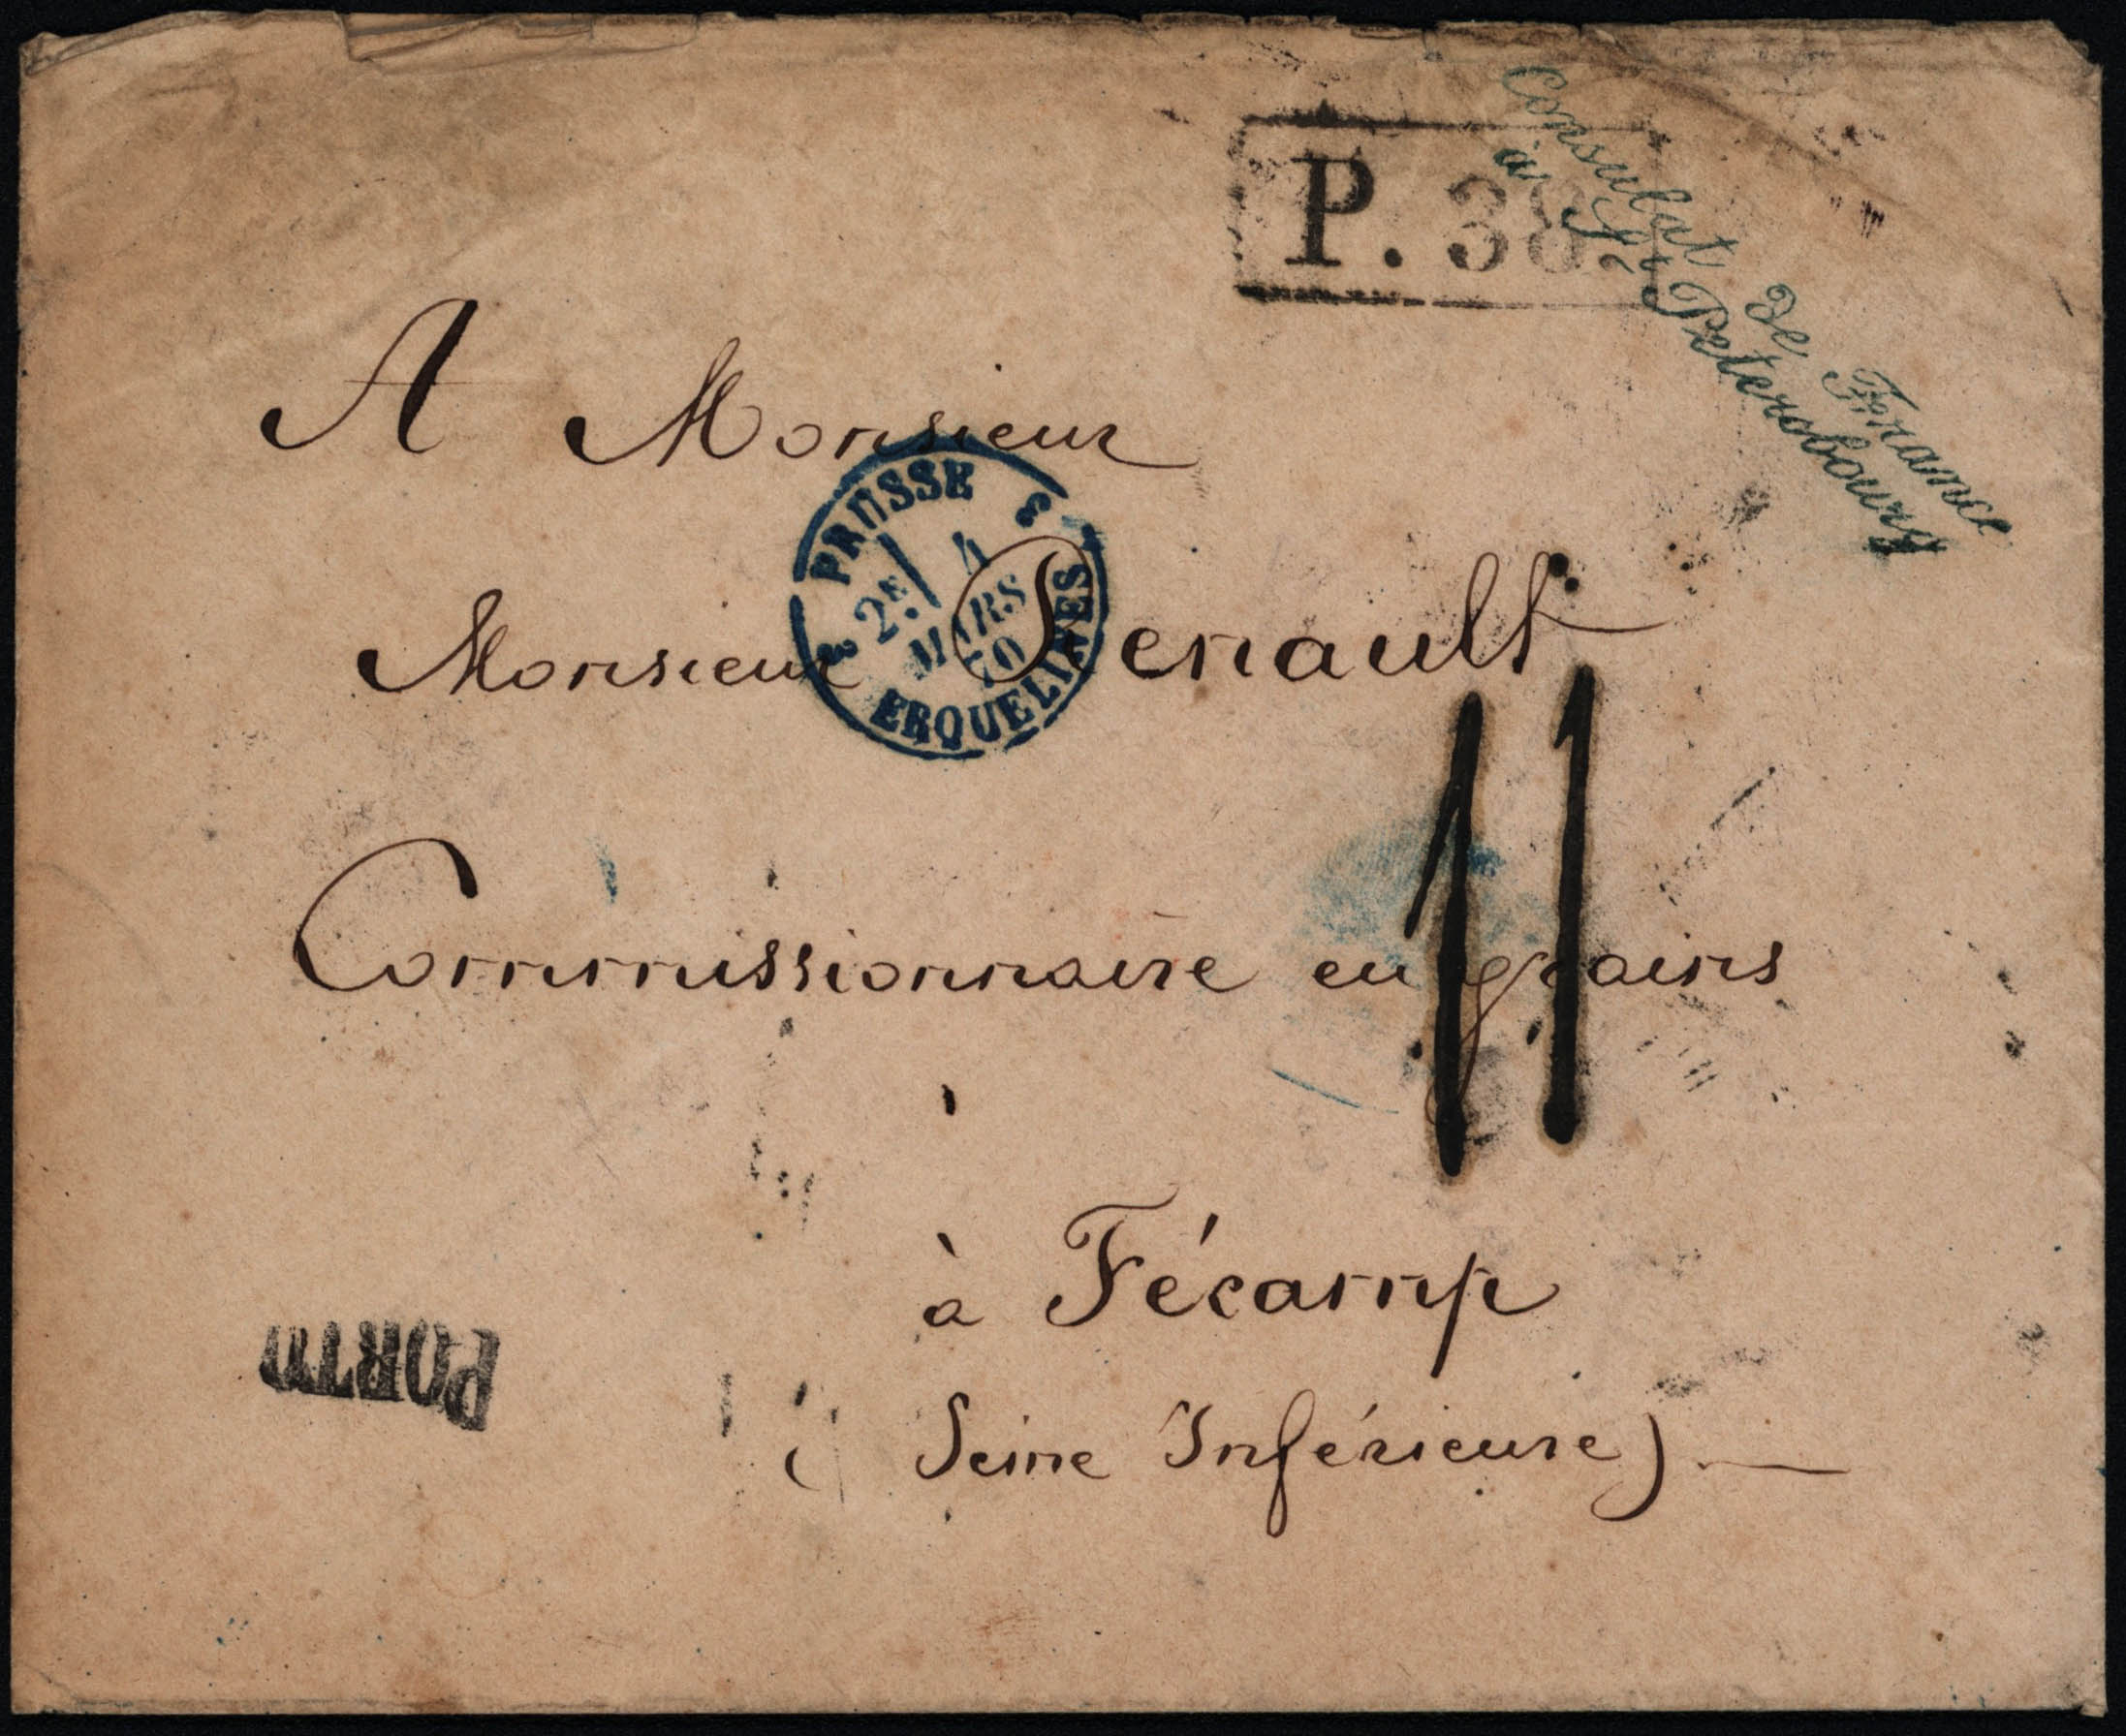 P. 38.
Consulat de France
à St. Petersbourg
A Monsieur
PRUSSE
3
2E
4
MARS
70
3
ERQUELINES
Monsieur Renault
11
Commissionnaire en grains
à Fécamp
PORTO
( Seine Inférieure )